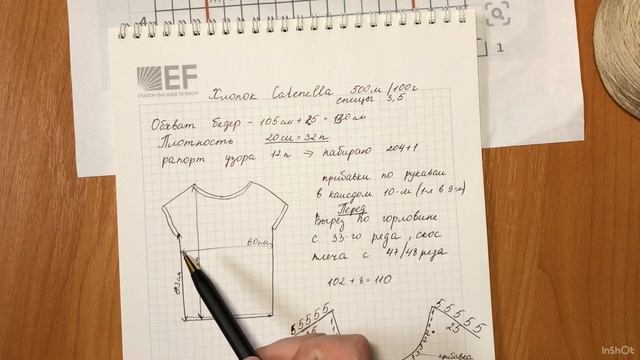 EF
ЕТАЛОН ФАСАДІВ ТА ВІКОН
Хлопок Catenella 500м/100г
спицы 3,5
Обхват бедер - 105см + 25 = 130см
Плотность 20см = 32п
рапорт узора 12п ⇒ набираю 204+1
прибавки по рукавам
в каждом 10-м (1-л в 9-м)
Перед
Вырез по горловине
с 33-го ряда, скос
плеча с 47/48 ряда
102 + 8 = 110
60см
5 5 5 5 5
25
5 5 5 5 5
25
прибавка
1
InShOt